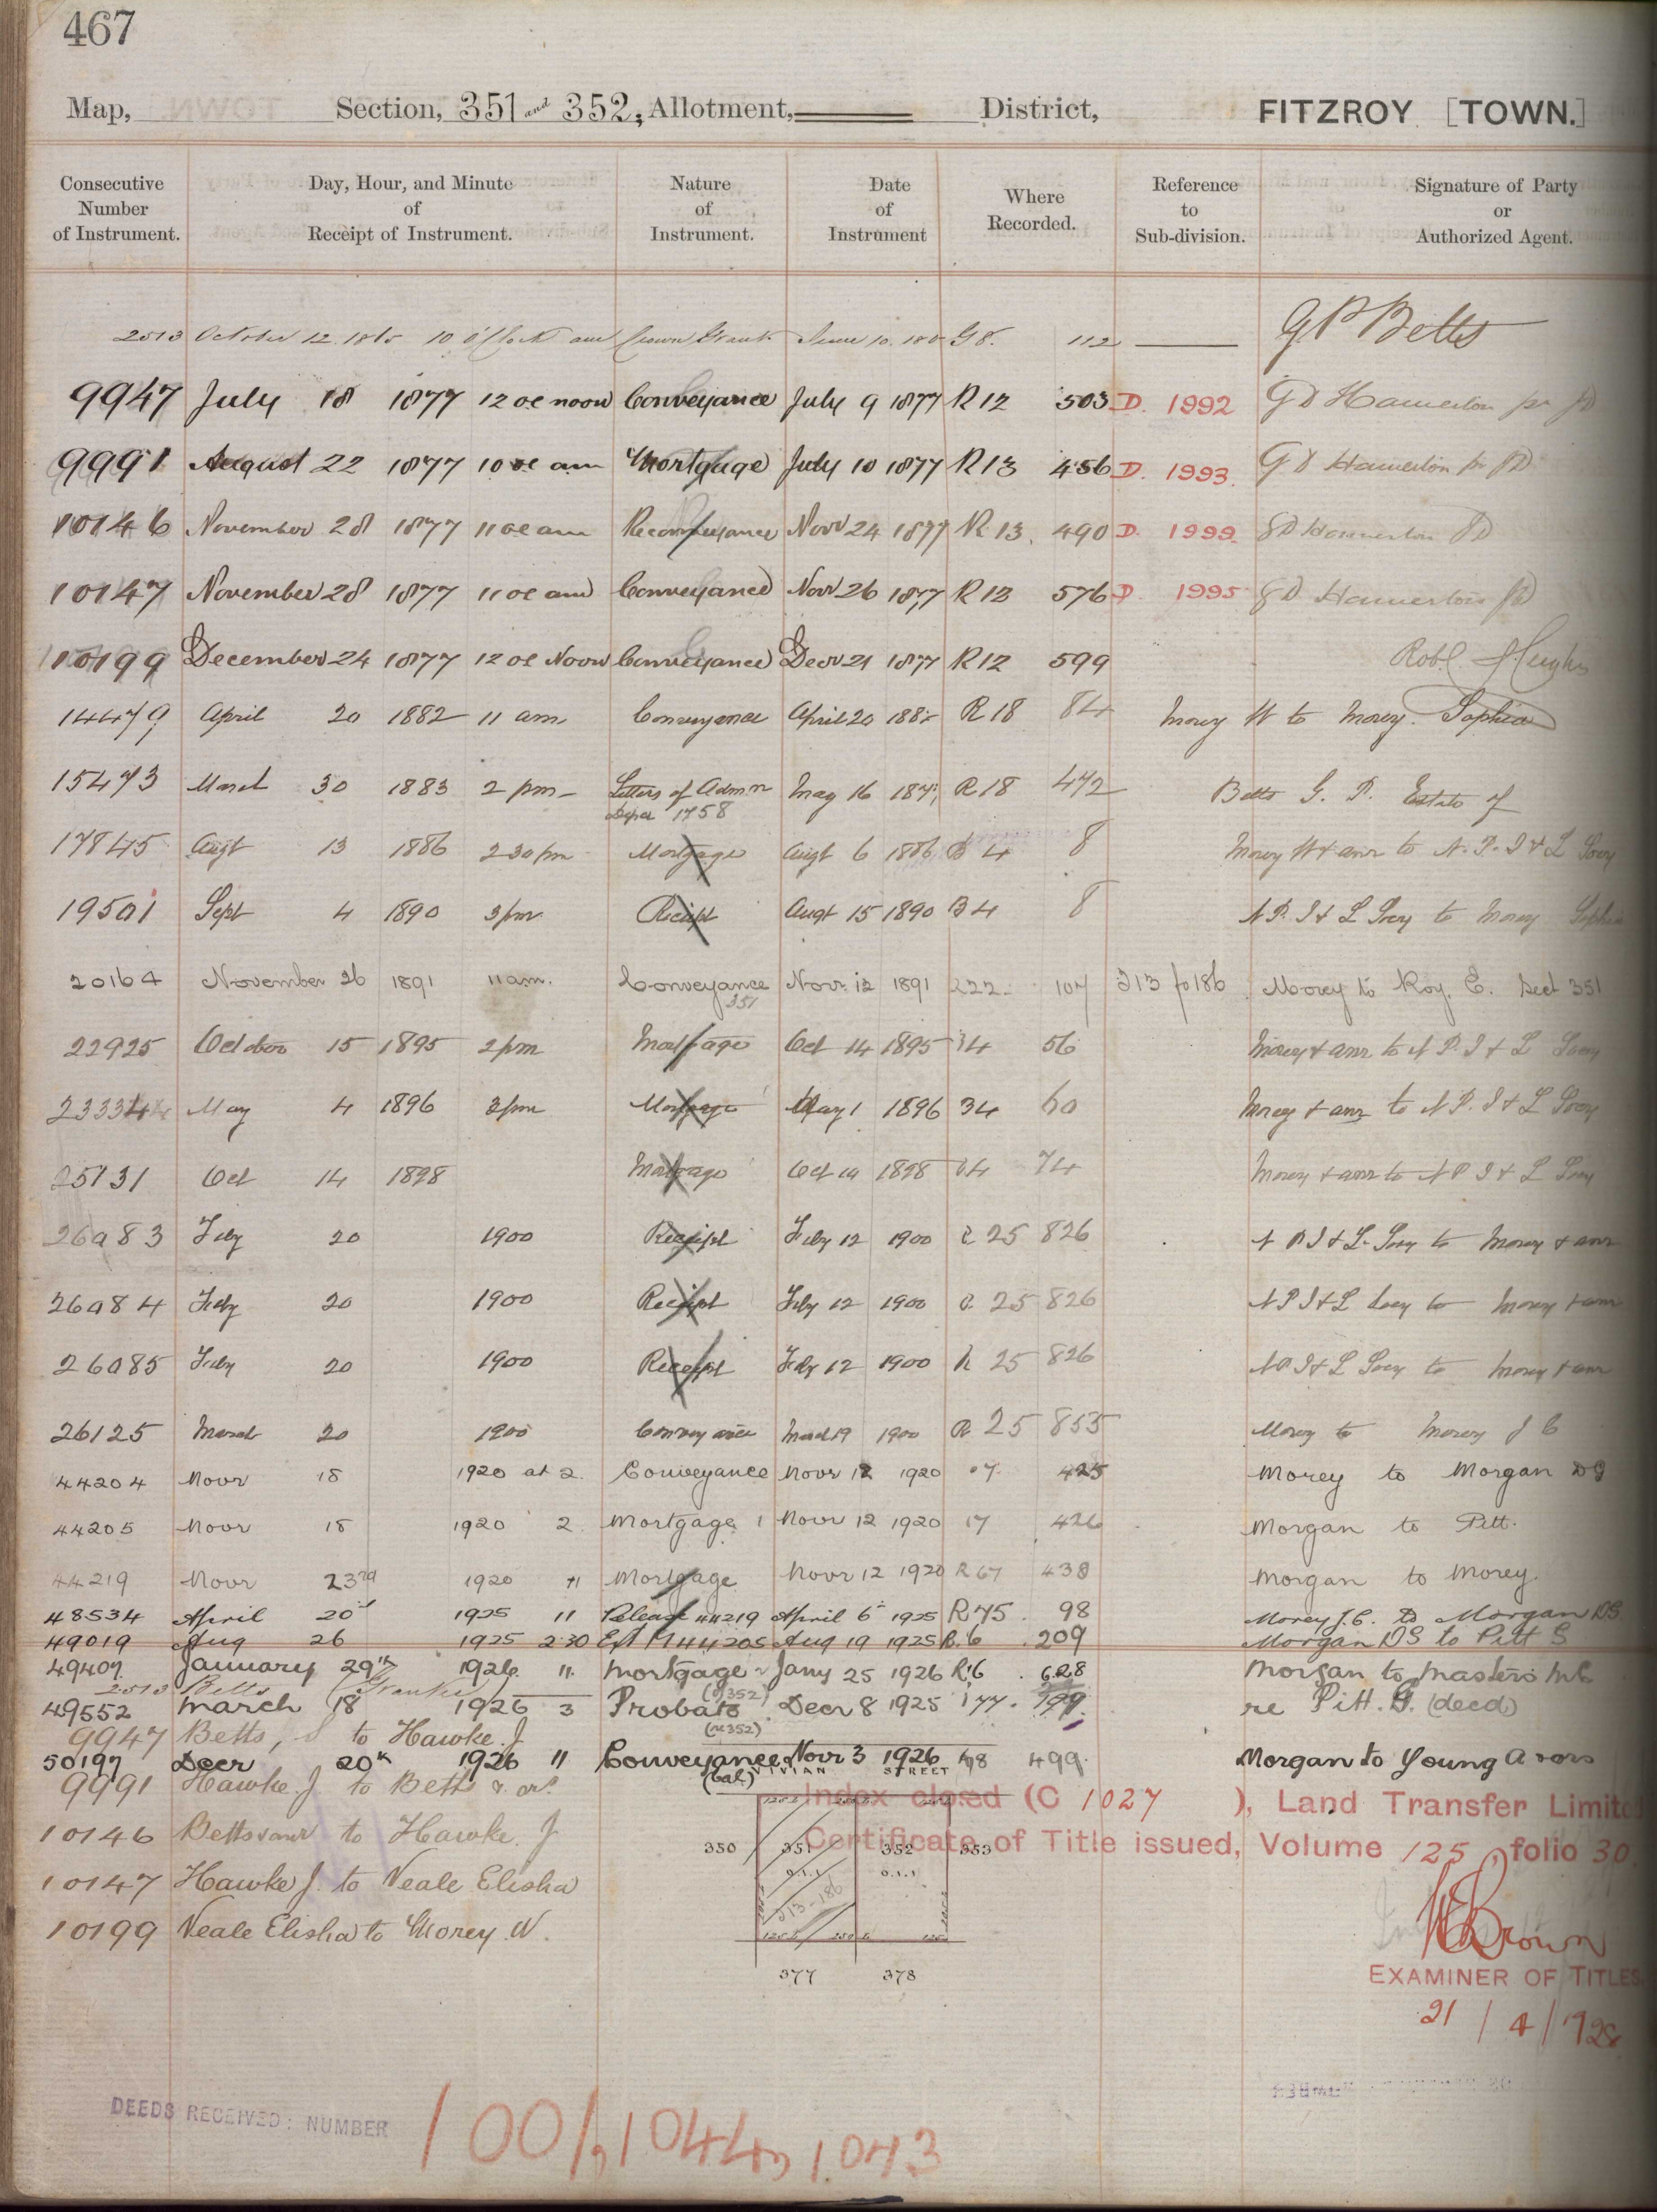 467
Map, Section, 351 and 352, Allotment, District, FITZROY [TOWN.]
Consecutive Number of Instrument. Day, Hour, and Minute of Receipt of Instrument. Nature of Instrument. Date of Instrument Where Recorded. Reference to Sub-division. Signature of Party or Authorized Agent.
2513 October 12. 10 o'Clock am Crown Grant June 10. G8. 112 G P Betts
9947 July 18 1877 12 oc noon Conveyance July 9 1877 R12 503 D. 1992 G D Hamerton
9991 August 22 1877 10 oc am Mortgage July 10 1877 R13 456 D. 1993. G D Hamerton
10146 November 28 1877 11 oc am Reconveyance Novr 24 1877 R 13. 490 D. 1999. G D Hamerton
10147 November 28 1877 11 oc am Conveyance Novr 26 1877 R 12 576 D. 1995 G D Hamerton
10199 December 24 1877 12 oc Noon Conveyance Decr 21 1877 R12 599 Robt. Hughes
14479 April 20 1882 11 am Conveyance April 20 188 R 18 84 Morey W to Morey. Sophia
15473 March 30 1883 2 pm Letters of Admn May 16 R 18 472 Betts G. P. Estate of
1758
17845 Augt 13 1886 2 30 pm Mortgage Augt 6 1886 4 8 Morey W & anr to N. P. I & L Socy
19501 Sept 4 1890 3 pm Receipt Augt 15 1890 B4 8 N P. I & L Socy to Morey Sophia
20164 November 26 1891 11 am. Conveyance Novr. 12 1891 222 104 213 fo 186 Morey to Roy. E. Sect 351
351
22925 October 15 1895 2 pm Mortgage Oct 14 1895 34 56 Morey & anr to N P. I & L Socy
23334 May 4 1896 3 pm Mortgage May 1 1896 34 60 Morey & anr to N P. I & L Socy
25131 Oct 14 1898 Mortgage Oct 14 1898 34 74 Morey & anr to N P I & L Socy
26083 Feby 20 1900 Receipt Feby 12 1900 25 826 N P I & L Socy to Morey & anr
26084 Feby 20 1900 Receipt Feby 12 1900 25 826 N P I & L Socy to Morey & anr
26085 Feby 20 1900 Receipt Feby 12 1900 R 25 826 N P I & L Socy to Morey & anr
26125 March 20 1900 Conveyance March 19 1900 R 25 855 Morey to Morey J C
44204 Novr 18 1920 at 2. Conveyance Novr 12 1920 425 Morey to Morgan D S
44205 Novr 18 1920 2. Mortgage Novr 12 1920 426 Morgan to Pitt.
44219 Novr 23rd 1920 11 Mortgage Novr 12 1920 R 67 438 Morgan to Morey.
48534 April 20th 1925 11 Release 44219 April 6th 1925 R 75. 98 Morey J.C. to Morgan D.S.
49019 Aug 26 1925 2.30 Ext M 44205 Aug 19 1925 R. 6 209 Morgan D S to Pitt G
49407. January 29th 1926. 11. Mortgage Jany 25 1926 628 Morgan to Masters
2513 Betts (Grantee) (of 352)
49552 March 18 1926 3 Probate Decr 8 1925 77. 199. re Pitt. G. (decd)
9947 Betts, to Hawke. J (re 352)
50197 Decr 20th 1926 11 Conveyance Novr 3 1926 499. Morgan to Young A
9991 Hawke. J to Betts & or. (bal)
VIVIAN STREET
Index closed (C 1027 ), Land Transfer Limited
10146 Betts & anr to Hawke. J
350 351 352 353
0.1.1 0.1.1
Certificate of Title issued, Volume 125, folio 30.
10147 Hawke J. to Veale Elisha
213-186
10199 Veale Elisha to Morey. W.
377 378
Brown
EXAMINER OF TITLES.
21 / 4 / 1928
DEEDS RECEIVED: NUMBER
1001, 1044, 1043